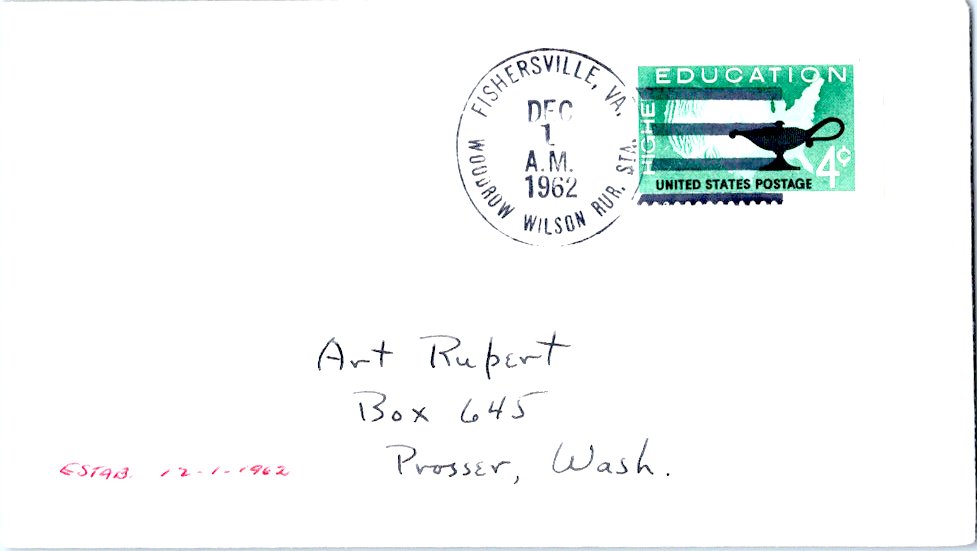 FISHERSVILLE, VA.
DEC
1
A.M.
1962
WOODROW WILSON RUR. STA.
HIGHER EDUCATION
4¢
UNITED STATES POSTAGE
Art Rupert
Box 645
Prosser, Wash.
ESTAB. 12-1-1962